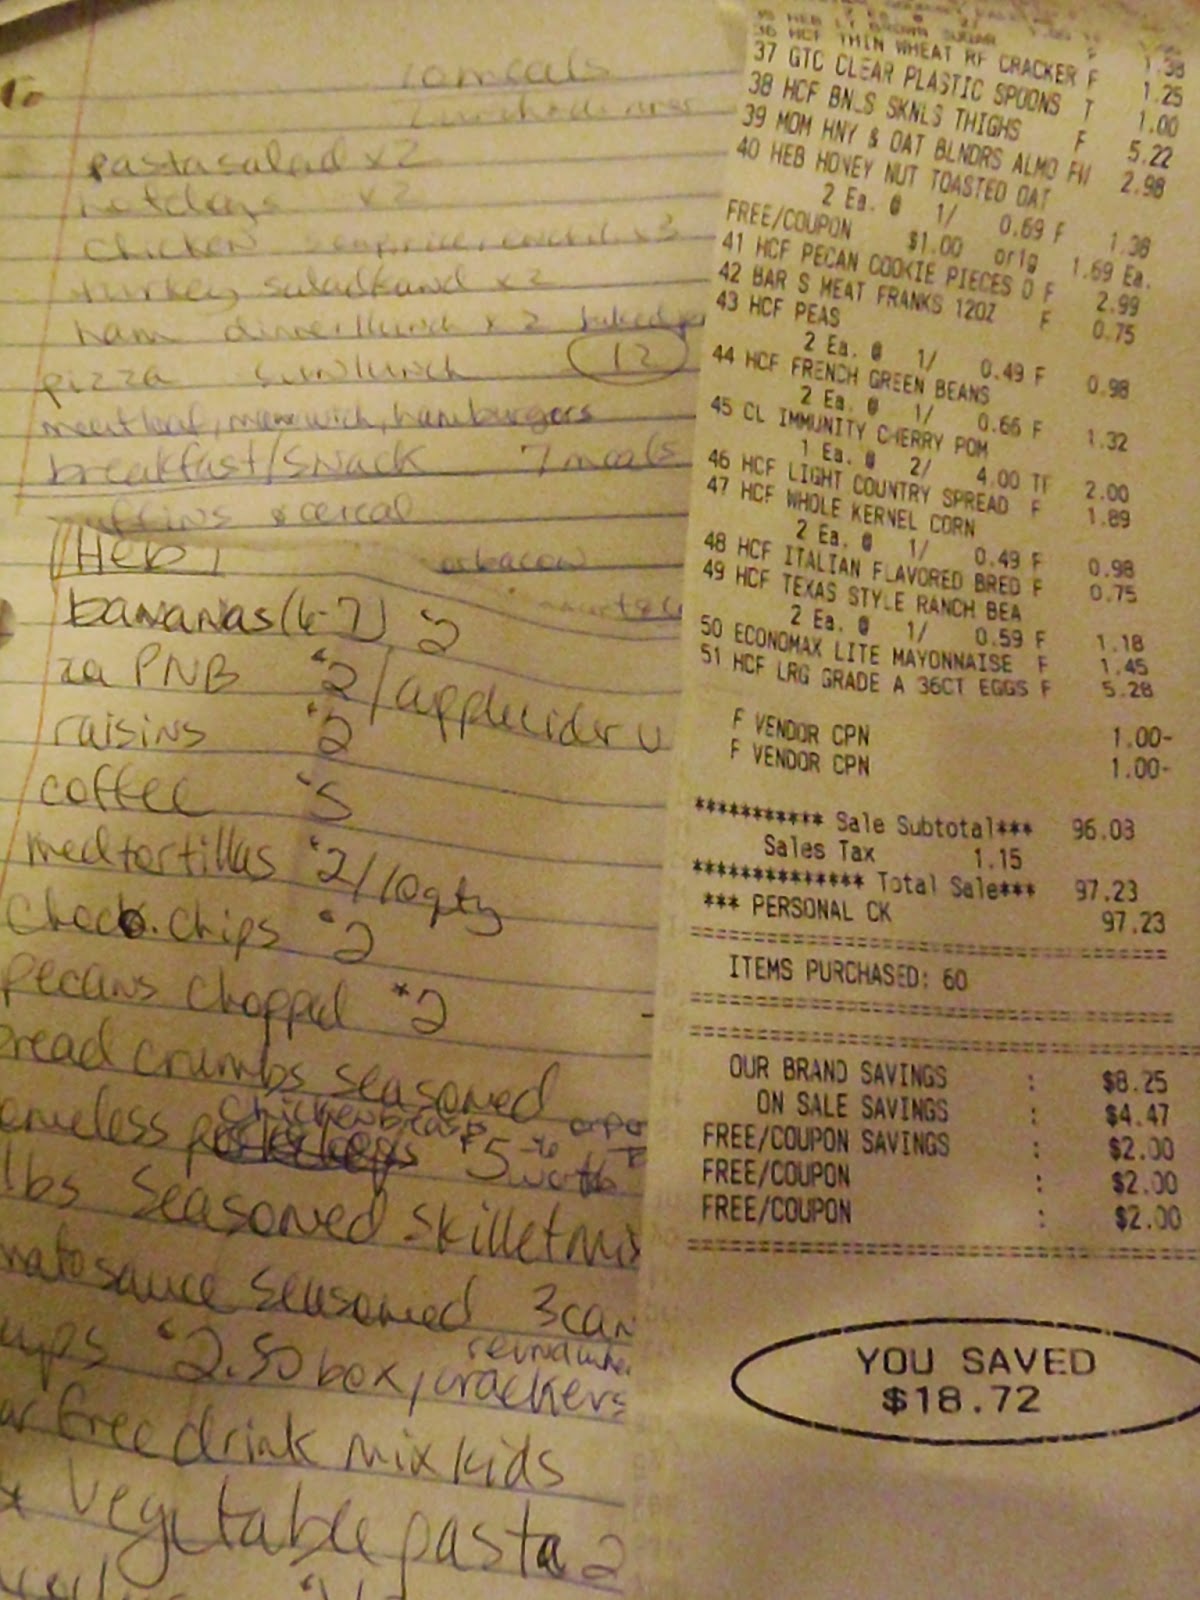 10 meals
lunch & dinner
pasta salad x 2
hotdogs x 2
chicken x 3
turkey, salad x 2
ham dinner/lunch x 2 baked
pizza sun lunch 12
meatloaf, manwich, hamburgers
breakfast/snack 7 meals
& cereal
Heb or bacon
bananas (6-7) 2
PNB $2/applecider
raisins $2
coffee $5
med tortillas $2/10 qty
choco. chips $2
pecans chopped $2
bread crumbs seasoned
chicken breasts
$5 worth
lbs seasoned skillet mix
sauce seasoned 3 can
$2.50 box, crackers
free drink mix kids
vegetable pasta 2
35 HEB LT BROWN SUGAR
36 HCF THIN WHEAT RF CRACKER F 1.38
37 GTC CLEAR PLASTIC SPOONS T 1.25
38 HCF BNLS SKNLS THIGHS F 1.00
39 MOM HNY & OAT BLNDRS ALMD FW 5.22
40 HEB HONEY NUT TOASTED OAT 2.98
2 Ea. @ 1/ 0.69 F 1.38
FREE/COUPON $1.00 orig 1.69 Ea.
41 HCF PECAN COOKIE PIECES O F 2.99
42 BAR S MEAT FRANKS 12OZ F 0.75
43 HCF PEAS
2 Ea. @ 1/ 0.49 F 0.98
44 HCF FRENCH GREEN BEANS
2 Ea. @ 1/ 0.66 F 1.32
45 CL IMMUNITY CHERRY POM
1 Ea. @ 2/ 4.00 TF 2.00
46 HCF LIGHT COUNTRY SPREAD F 1.89
47 HCF WHOLE KERNEL CORN
2 Ea. @ 1/ 0.49 F 0.98
48 HCF ITALIAN FLAVORED BRED F 0.75
49 HCF TEXAS STYLE RANCH BEA
2 Ea. @ 1/ 0.59 F 1.18
50 ECONOMAX LITE MAYONNAISE F 1.45
51 HCF LRG GRADE A 36CT EGGS F 5.28
F VENDOR CPN 1.00-
F VENDOR CPN 1.00-
*********** Sale Subtotal*** 96.03
Sales Tax 1.15
************** Total Sale*** 97.23
*** PERSONAL CK 97.23
ITEMS PURCHASED: 60
OUR BRAND SAVINGS : $8.25
ON SALE SAVINGS : $4.47
FREE/COUPON SAVINGS : $2.00
FREE/COUPON : $2.00
FREE/COUPON : $2.00
YOU SAVED
$18.72